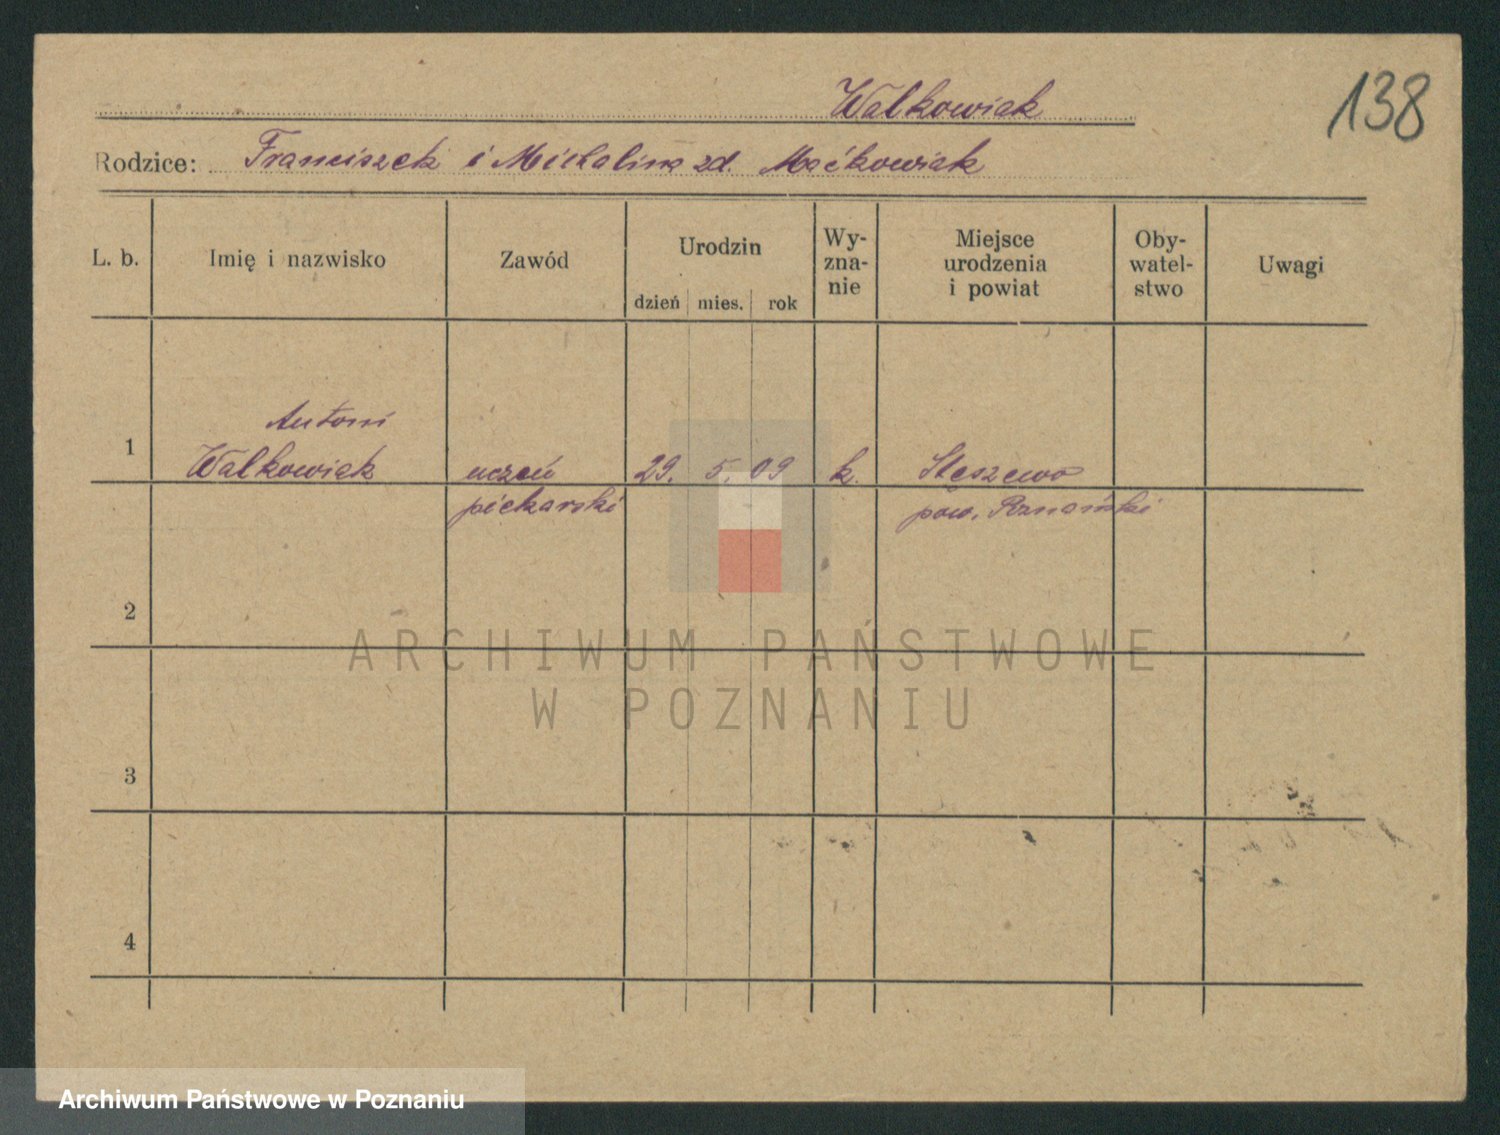 Walkowiak
138
Rodzice: Franciszek i Michalina zd. Maćkowiak
L. b.
Imię i nazwisko
Zawód
Urodzin
dzień mies. rok
Wy-
zna-
nie
Miejsce
urodzenia
i powiat
Oby-
watel-
stwo
Uwagi
1
Antoni
Walkowiak
uczeń
piekarski
29. 5. 09
k.
Stęszewo
pow. Poznański
2
3
4
ARCHIWUM PAŃSTWOWE
W POZNANIU
Archiwum Państwowe w Poznaniu